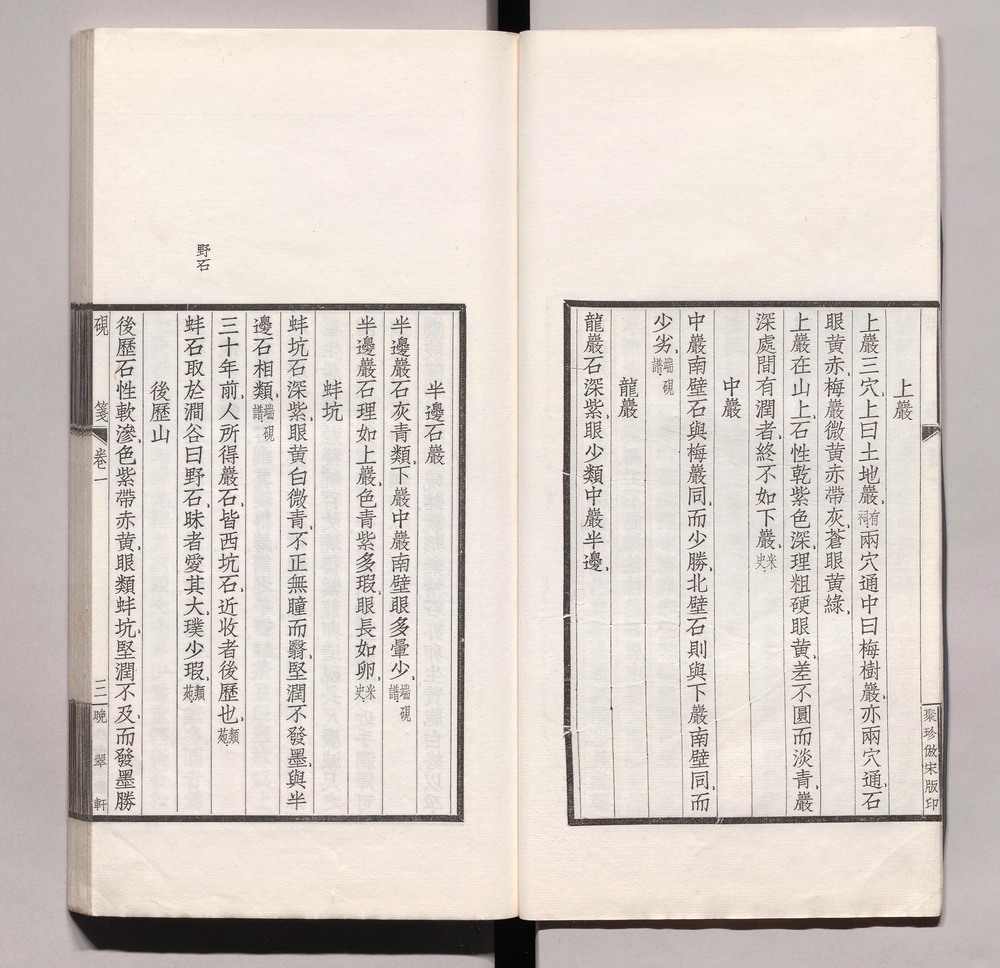 上巖
上巖三穴上曰土地巖有祠兩穴通中曰梅樹巖亦兩穴通石
眼黃赤梅巖微黃赤帶灰蒼眼黃綠
上巖在山上石性乾紫色深理粗硬眼黃差不圓而淡青巖
深處間有潤者終不如下巖米史
中巖
中巖南壁石與梅巖同而少勝北壁石則與下巖南壁同而
少劣端硯譜
龍巖
龍巖石深紫眼少類中巖半邊
聚珍倣宋版印
半邊石巖
半邊巖石灰青類下巖中巖南壁眼多暈少端硯譜
半邊巖石理如上巖色青紫多瑕眼長如卵米史
蚌坑
蚌坑石深紫眼黃白微青不正無瞳而翳堅潤不發墨與半
邊石相類端硯譜
三十年前人所得巖石皆西坑石近收者後歷也類苑
野石
蚌石取於澗谷曰野石昧者愛其大璞少瑕類苑
後歷山
後歷石性軟滲色紫帶赤黃眼類蚌坑堅潤不及而發墨勝
硯箋 卷一 三 晚翠軒